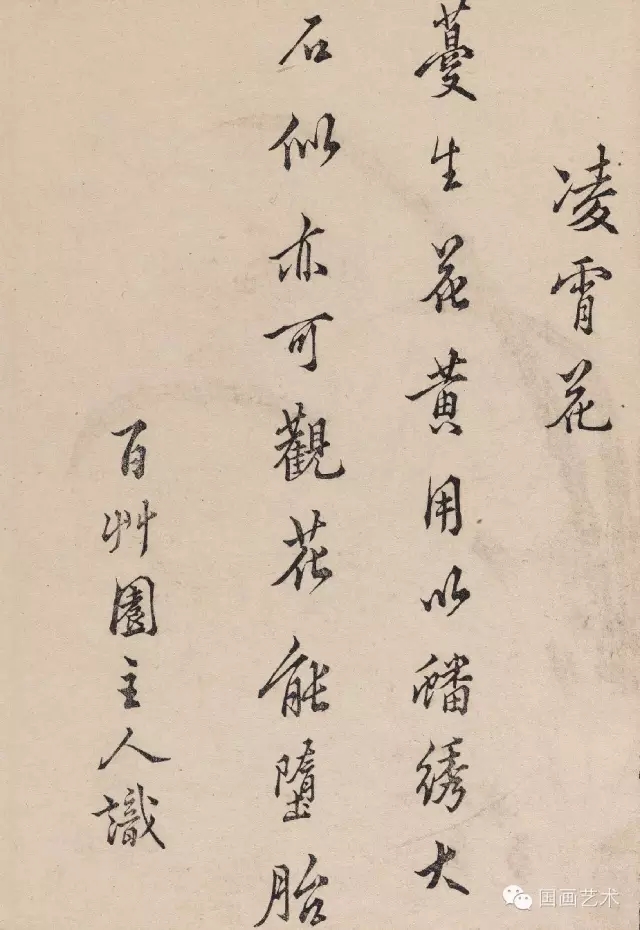 凌霄花
蔓生花黄用以蟠綉大
石似亦可觀花能墮胎
百艸園主人識
国画艺术